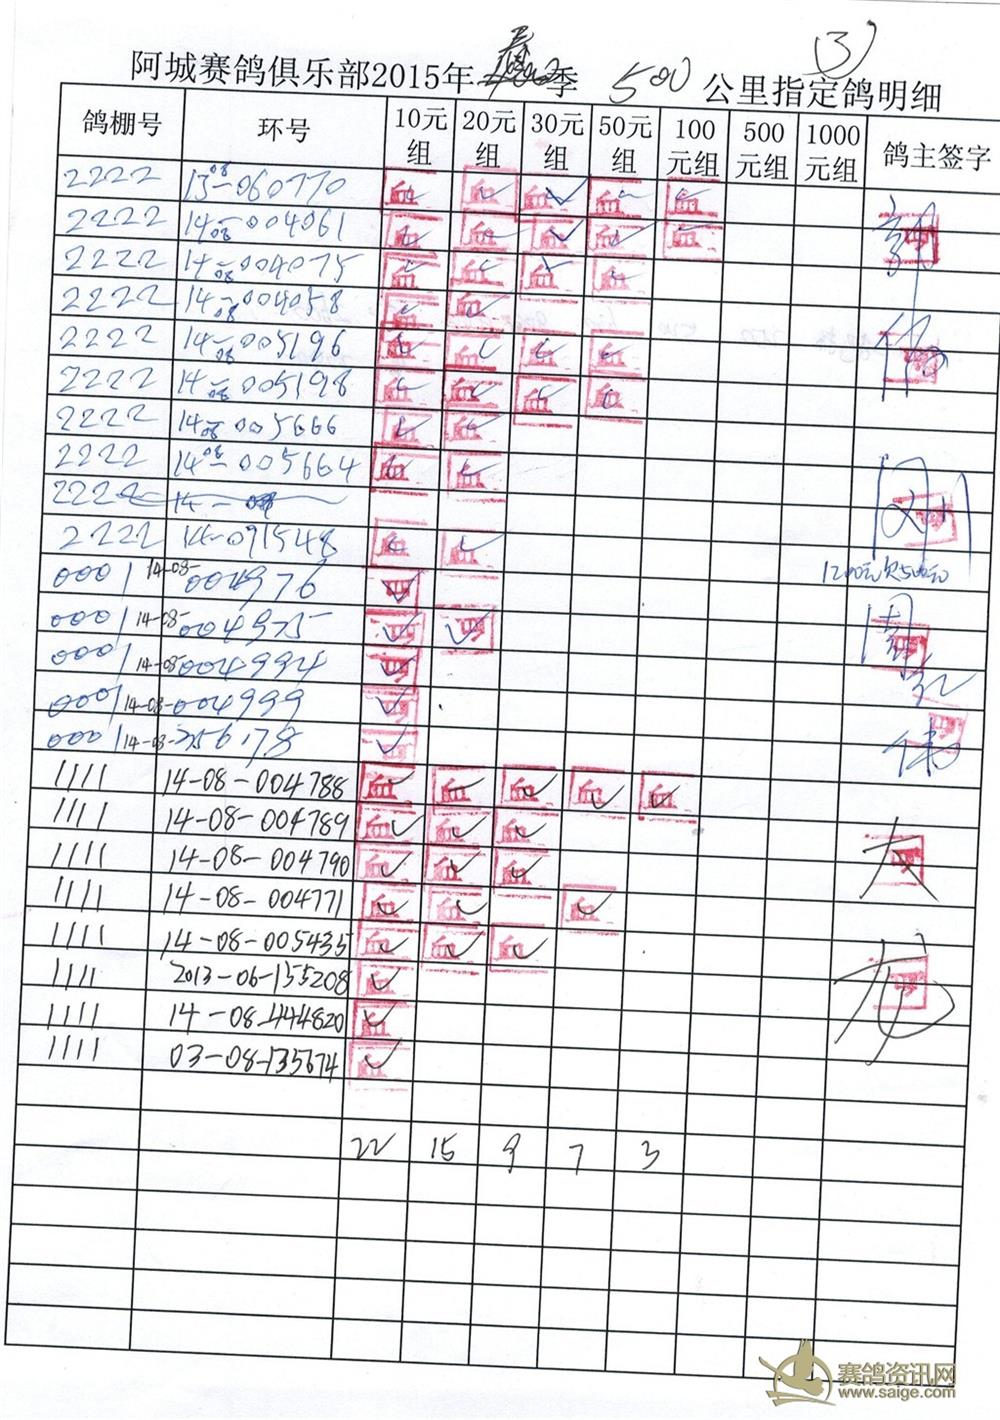 (3)
阿城赛鸽俱乐部2015年春季 500 公里指定鸽明细
鸽棚号 环号 10元组 20元组 30元组 50元组 100元组 500元组 1000元组 鸽主签字
2222 13-08-060770
2222 14-08-004061
2222 14-08-004075
2222 14-08-004058
2222 14-08-005196
2222 14-08-005198
2222 14-08-005666
2222 14-08-005664
2222 14-08
2222 14-091548
1200元欠500元
0001 14-08-004976
0001 14-08-004975
0001 14-08-004994
0001 14-08-004999
0001 14-08-256178
1111 14-08-004788
1111 14-08-004789
1111 14-08-004790
1111 14-08-004771
1111 14-08-005435
1111 2013-06-155208
1111 14-08-444820
1111 03-08-135674
22 15 9 7 3
赛鸽资讯网
www.saige.com